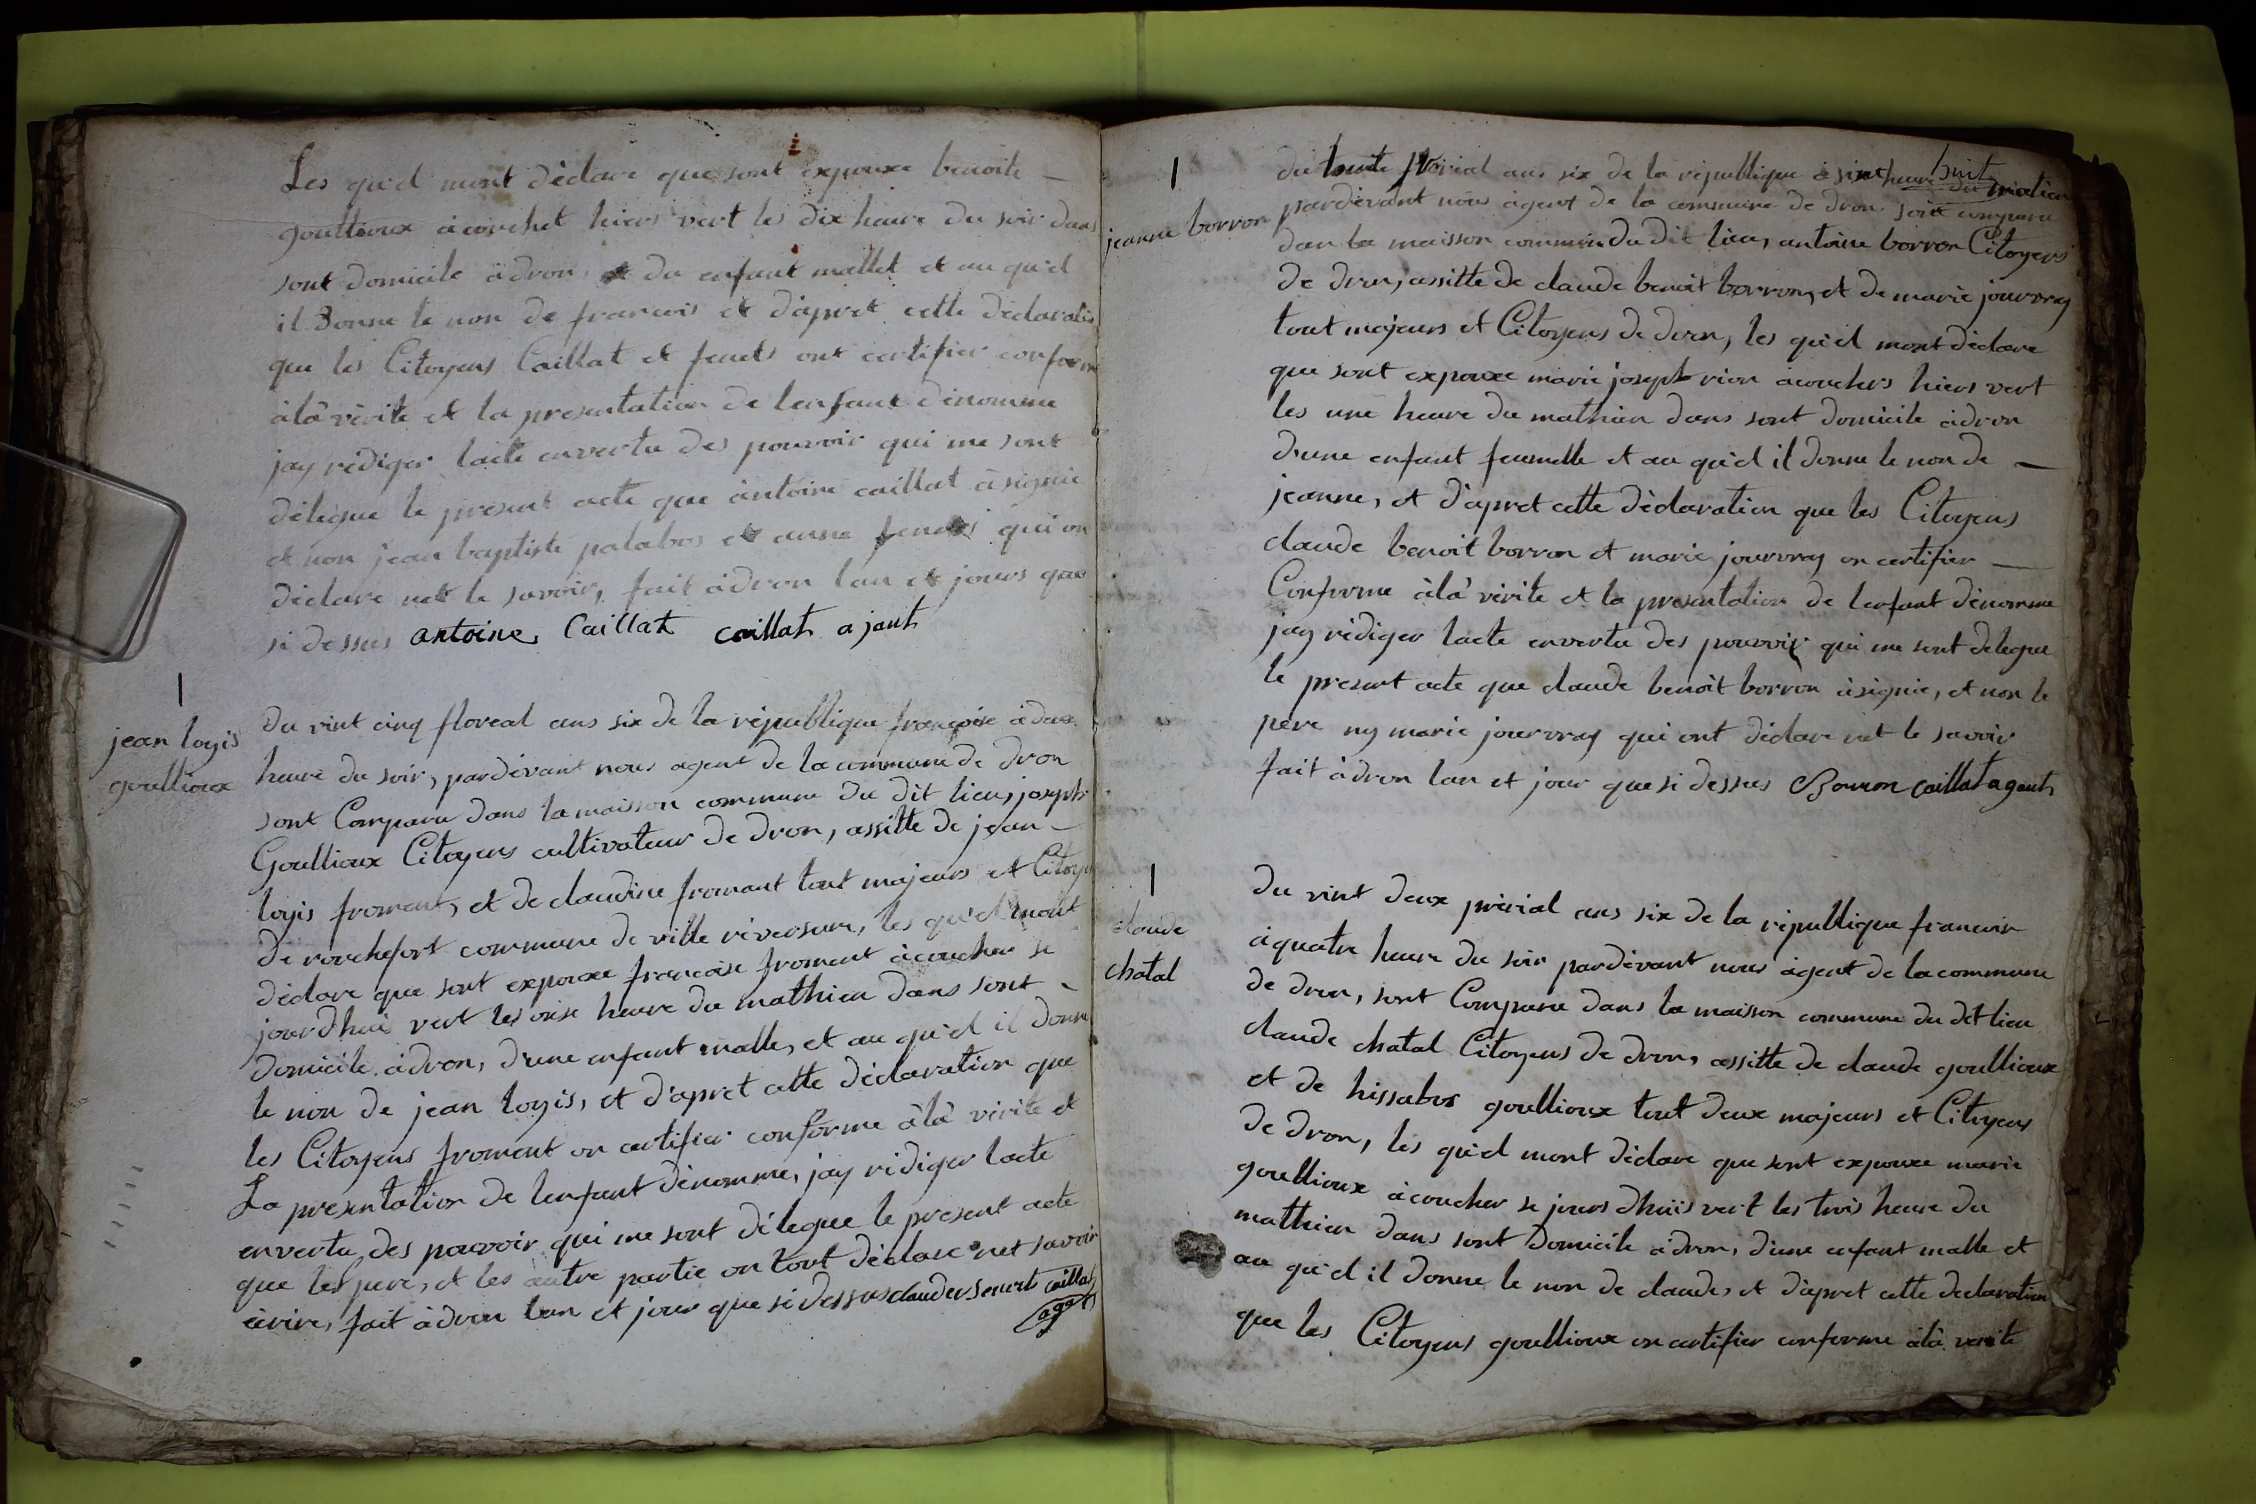 Les qu'el mont déclare que sont expouxe benoite —
goullioux àcorchet hiers vert les dix heure du soir dans
sont domicile àdron, du enfant mallet et au qu'el
il donne le non de francois et d'apret cette déclaration
que les Citoyens Caillat et ont certifier conforme
àlà vérite et la presentation de lenfant dénomme
jay rédiger lacte envertu des pouvoir qui me sont
délegue le present acte que àntoine caillat àsignie
et non jean baptiste palabos et anne qui on
déclare net le savoir, fait àdron lan et jours que
si dessus antoine Caillat caillat ajant
jean loyis
goullioux
Du vint cinq floreal ans six de la république françoise à deux
heure du soir, pardévant nous agent de la commune de dron
sont Comparu dans la maison commune du dit lieu, joseph
Goullioux Citoyens cultivateur de dron, assitte de jean —
loyis froment, et de claudine fromant tout majeurs et Citoyens
de rochefort commune de ville reversure, les qu'el mont
déclare que sont expouxe francoise froment àcoucher se
jourdhui vert les onse heure du mathien dans sont —
domicile àdron, d'une enfant malle, et au qu'el il donne
le non de jean loyis, et d'apret cette déclaration que
les Citoyens froment on certifier conforme àlà vérite et
La presentation de lenfant dénomme, jay rédiger lacte
envertu des pouvoir qui me sont délegue le present acte
que les pere, et les àutre partie on tout déclare net savoir
écrire, fait àdron lan et jour que si dessus caillat
agent
jeanne borron
du prérial ans six de la république à heure huit du matien
pardévant nous àgent de la commune de dron sont comparu
dan la maisson commun du dit lieu, antoine borron Citoyens
de dron, assitte de claude benoit borron, et de marie jourvray
tout majeurs et Citoyens de dron, les qu'el mont déclare
que sont expouxe marie joseph rion àcouchers hiers vert
les une heure du mathien dans sont domicile àdron
d'une enfant feumelle et au qu'el il donne le non de —
jeanne, et d'apret cette déclaration que les Citoyens
claude benoit borron et marie jourvray on certifier —
Conforme àlà vérite et la presentation de lenfant dénomme
jay rédiger lacte envertu des pouvoir qui me sont delegue
le present acte que claude benoit borron àsignie, et non le
pere ny marie jourvray qui ont déclare net le savoir
fait àdron lan et jour que si dessus Borron caillat agent
claude
chatal
Du vint deux prérial ans six de la république francoise
àquatre heure du soir pardévant nous àgent de la commune
de dron, sont Comparu dans la maisson commune du dit lieu
claude chatal Citoyens de dron, assitte de claude goullioux
et de hissabos goullioux tout deux majeurs et Citoyens
de dron, les qu'el mont déclare que sont expouxe marie
goullioux àcoucher se jours dhuis vert les trois heure du
mathien dans sont domicile àdron, d'une enfant malle et
au qu'el il donne le non de claude, et d'apret cette declaration
que les Citoyens goullioux on certifier conforme àlà verite